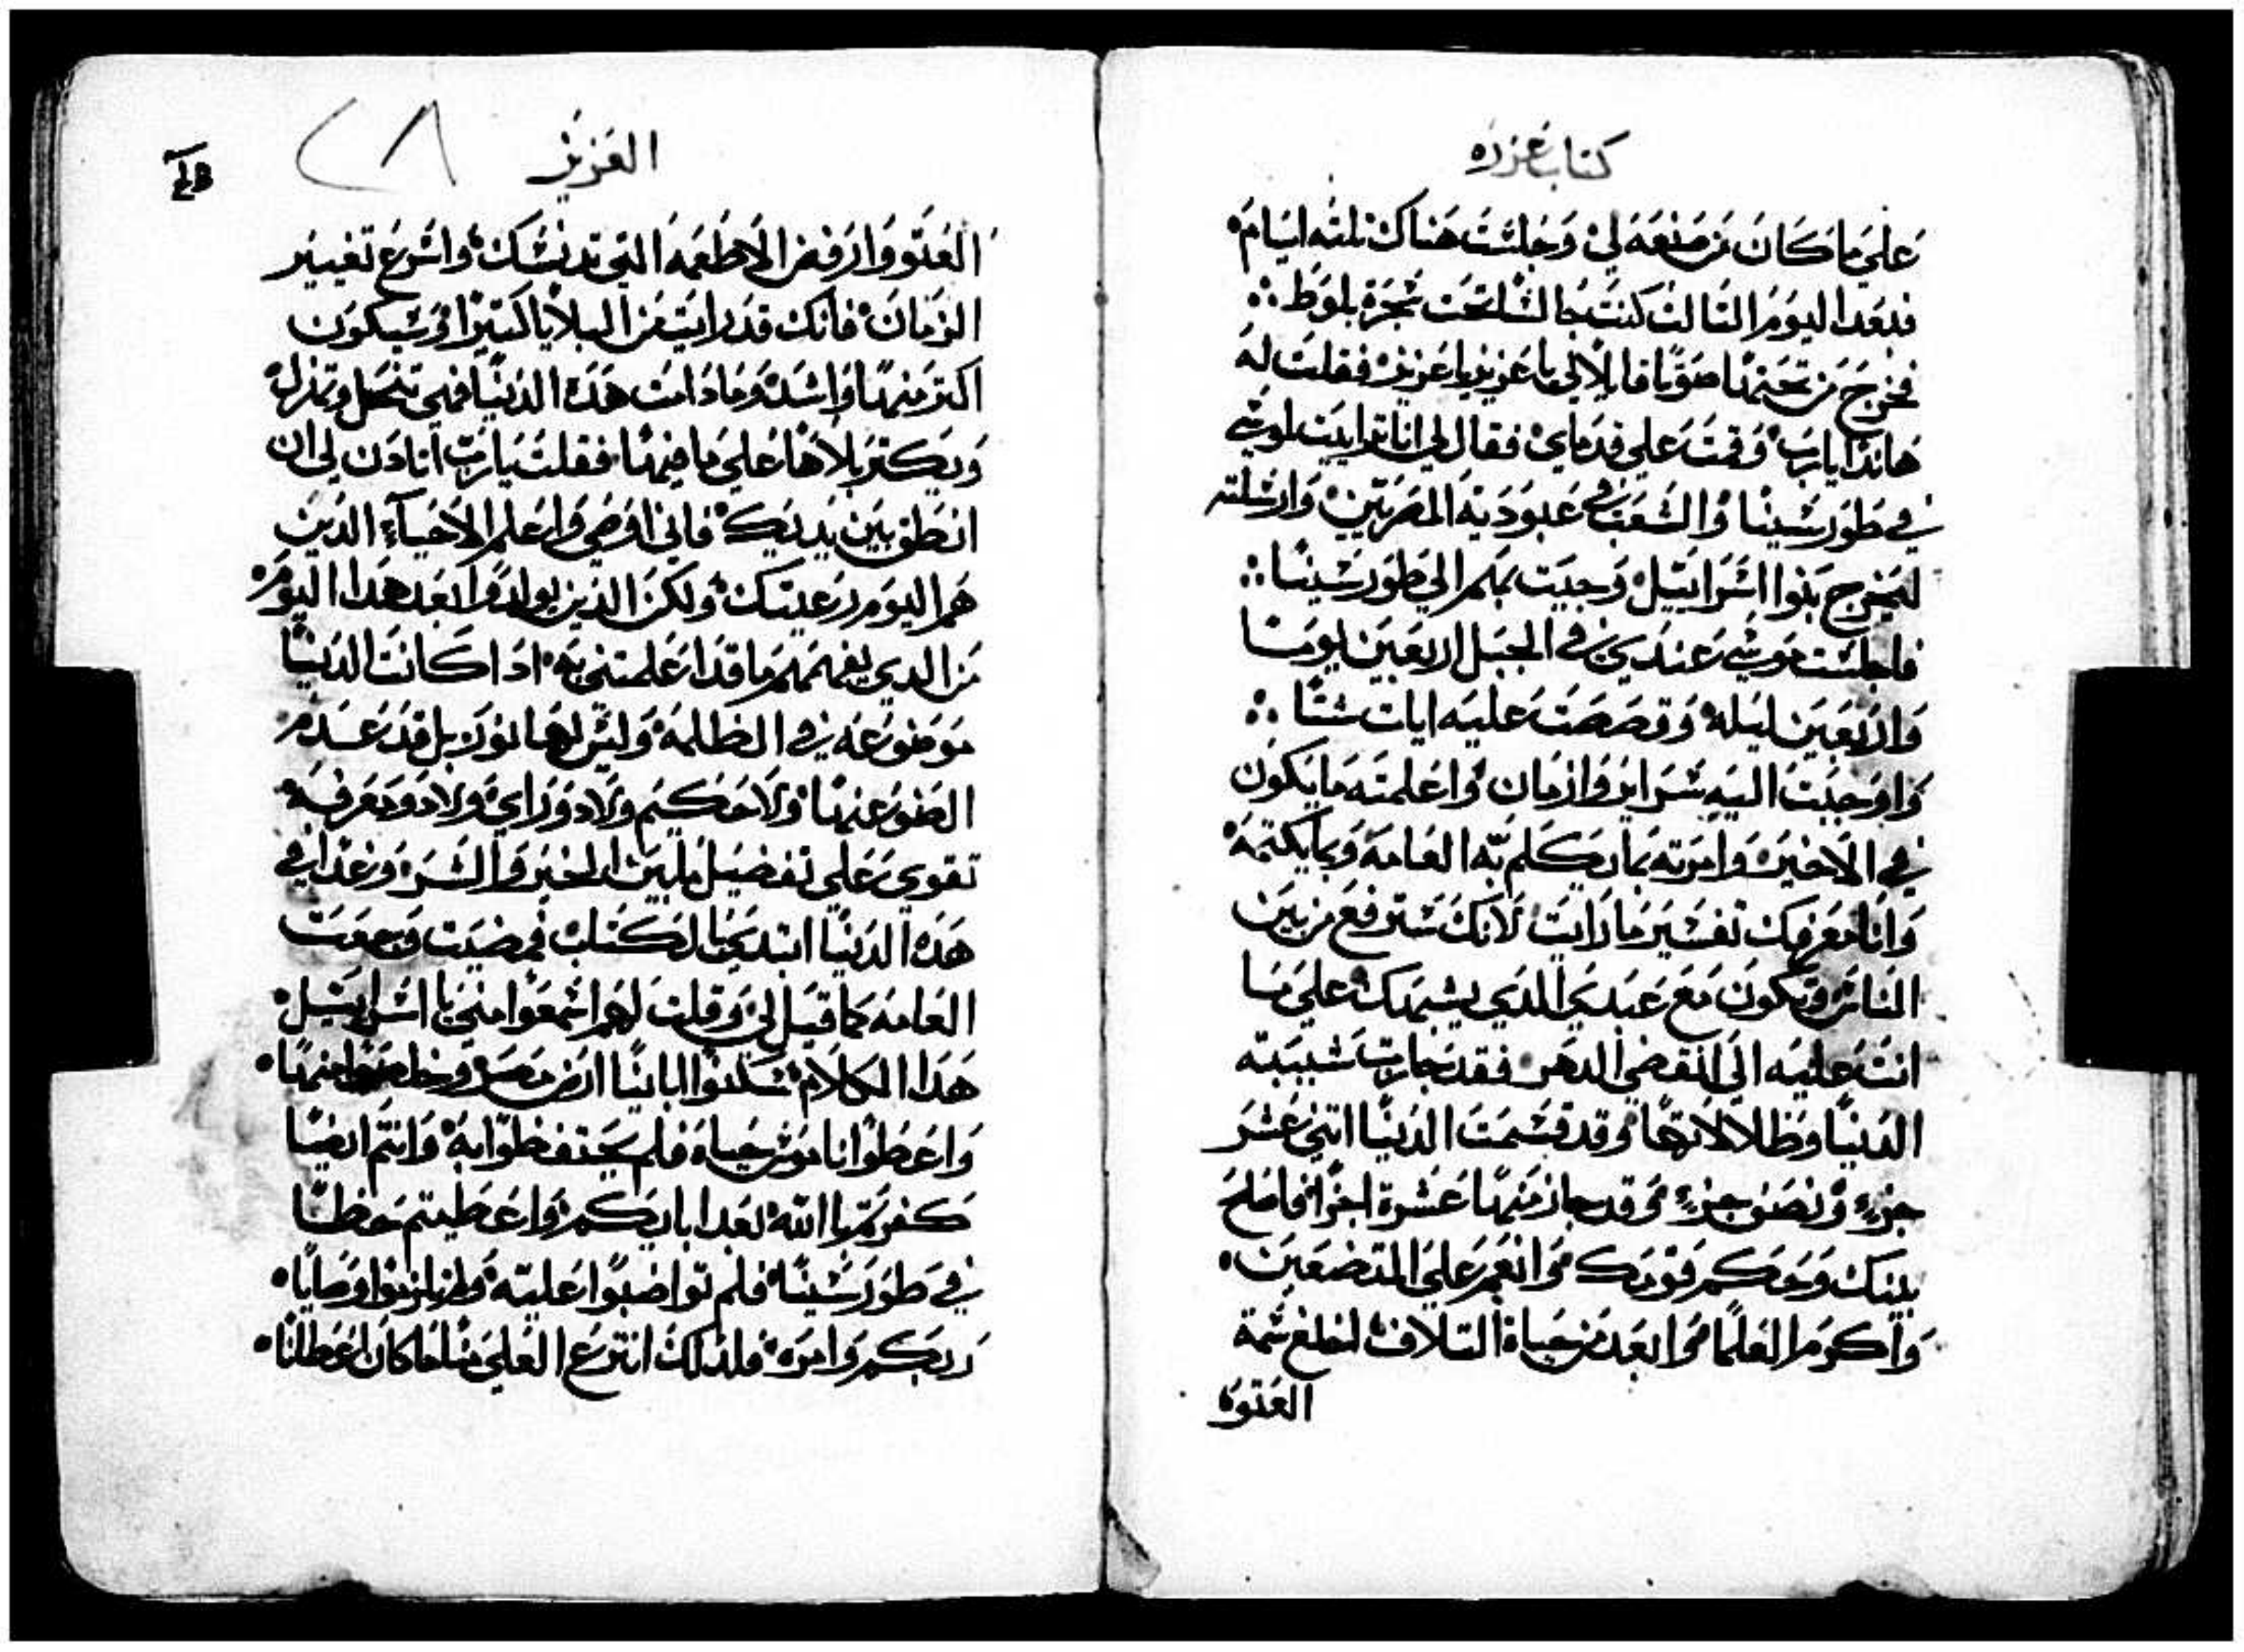 كتاب عزره
علي ما كان من صنعه لي وجلست هناك تلته ايام
فبعد اليوم التالت كنت جالسا تحت شجرة بلوط
فخرج من تحتها صوتا قايلا لي يا عزيز يا عزيز فقلت له
هاندا يارب وقمت علي قدماي فقال لي انا ترايت لموسي
في طور سينا والشعب في عبودية المصريين وارسلته
ليخرج بنوا اسراييل وجيت بهم الي طور سينا
فاجلست موسي عندي في الجبل اربعين يوما
واربعين ليله وقصصت عليه ايات شتا
واوحيت اليه سراير وازمان واعلمته ما يكون
في الاخير وامرته بما يكلم به العامه وبما يكتمه
وانا معرفك تفسير ما رايت لانك سترفع من بين
الناس وتكون مع عبدي الدي يشبهك علي ما
انت عليه الي انقضي الدهر فقد جازت شبيبته
الدنيا وظلالاتها وقد قسمت الدنيا اتني عشر
جزء ونصف جزء وقد جاز منها عشرة اجزا فاصلح
بيتك وحكم قومك وانعم علي المتضعين
واكرم العلما وابعد من حياة التلاف اخلع سمة
العتوه
العزيز
٢٨
العتو وارفض الاطعمه التي تدنسك واسرع تغيير
الزمان فانك قد رايت من البلايا كتيرا وسيكون
اكتر منها واشد وما دامت هده الدنيا فهي تنحل وتهزل
ويكتر بلاها علي ما فيها فقلت يارب اتادن لي ان
انطق بين يديك فاني امضي واعلم الاحياء الدين
هم اليوم رعيتك ولكن الدين يولدوا بعد هدا اليوم
من الدي يفهمهم ما قد اعلمتني به ادا كانت الدنيا
موضوعه في الظلمه وليس لها نور بل قد عدم
الضو عنها ولا حكيم ولا دو راي ولا دو معرفه
تقوي علي تفضيل ما بين الخير والشر وغدا في
هده الدنيا ابتدي بالكتاب فمضيت وجمعت
العامه كما قيل لي وقلت لهم اسمعوا مني يا اسراييل
هدا الكلام سكنوا اباينا ارض مصر وخلصوا منها
واعطوا ناموس حياه فلم يحتفظوا به وانتم ايضا
كفرتم باالله بعد ابايكم واعطيتم حظا
في طور سينا فلم تواضبوا عليه ولم تلزموا وصايا
ربكم وامره فلدلك انتزع العلي منا ما كان اعطانا